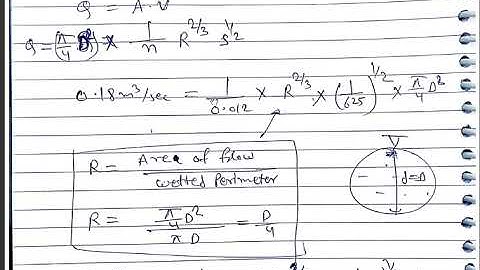 Q = A.V
Q = (π/4 D²) × 1/n R^2/3 S^1/2
0.18m³/sec = 1/0.012 × R^2/3 × (1/625)^1/2 × π/4 D²
R = Area of flow / wetted Perimeter
d=D
R = π/4 D² / πD = D/4